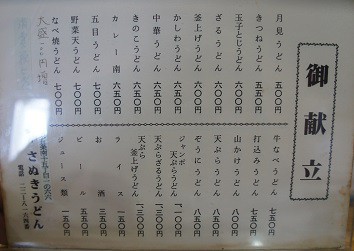 御献立
月見うどん 五〇〇円
きつねうどん 五五〇円
玉子とじうどん 六〇〇円
ざるうどん 六〇〇円
釜上げうどん 六五〇円
かしわうどん 六五〇円
中華うどん 六五〇円
きのこうどん 六五〇円
カレー南 六五〇円
五目うどん 七〇〇円
野菜天うどん 七〇〇円
なべ焼うどん 七〇〇円
牛なべうどん 七五〇円
打込みうどん 七五〇円
山かけうどん 八〇〇円
天ぷらうどん 八五〇円
ぞうにうどん 八五〇円
ジャンボ天ぷらうどん 一、一〇〇円
天ぷらざるうどん 一、三〇〇円
天ぷら釜上げうどん 一、三〇〇円
ライス 一五〇円
お酒 三五〇円
ビール 五五〇円
ジュース類 一五〇円
さぬきうどん